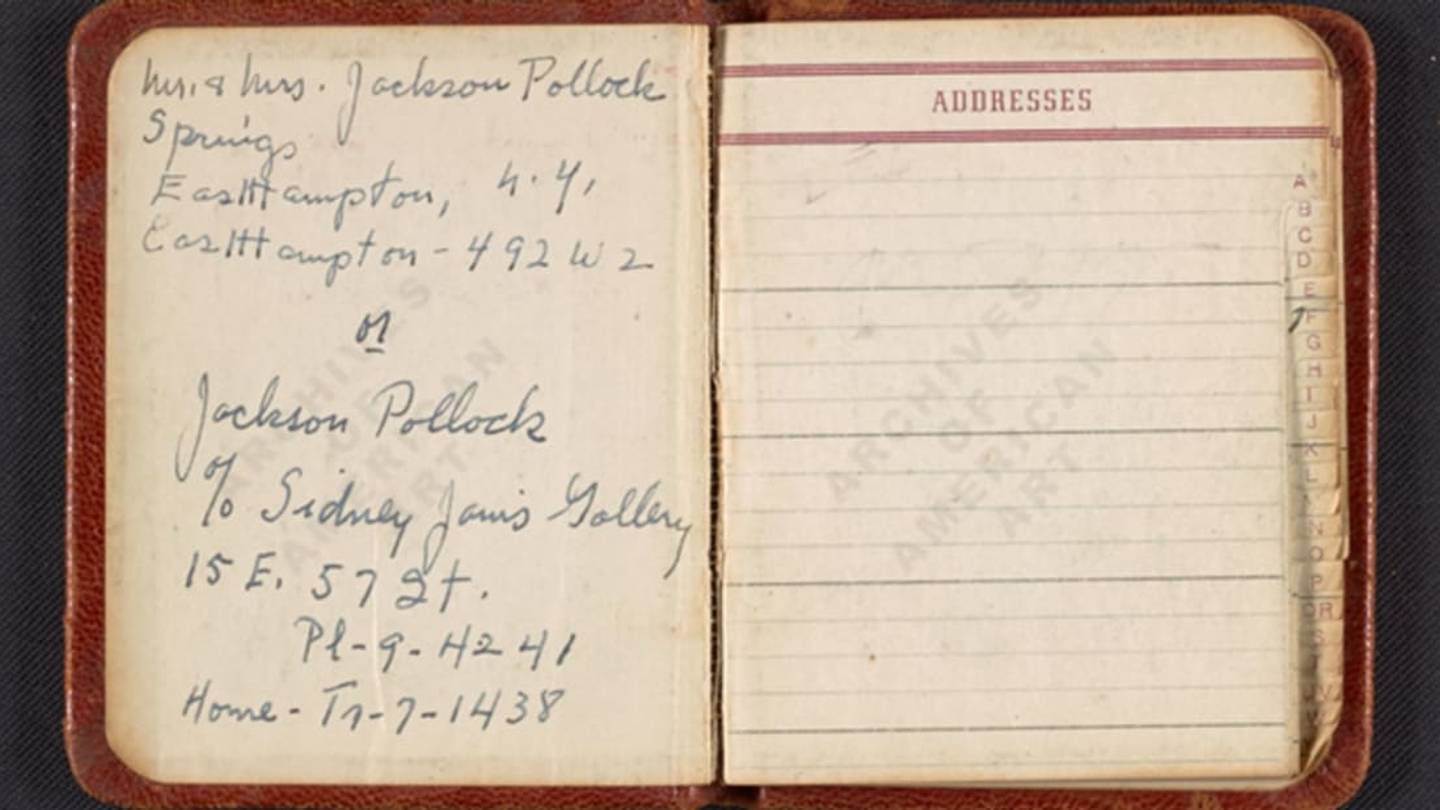 Mr. & Mrs. Jackson Pollock
Springs
EastHampton, N.Y.
EastHampton - 492 W 2
or
Jackson Pollock
c/o Sidney Janis Gallery
15 E. 57 St.
Pl-9-4241
Home - Tr-7-1438
ADDRESSES
A
B
C
D
E
F
G
H
I
J
K
L
N
O
P
QR
S
ARCHIVES
OF
AMERICAN
ART
ARCHIVES
OF
AMERICAN
ART